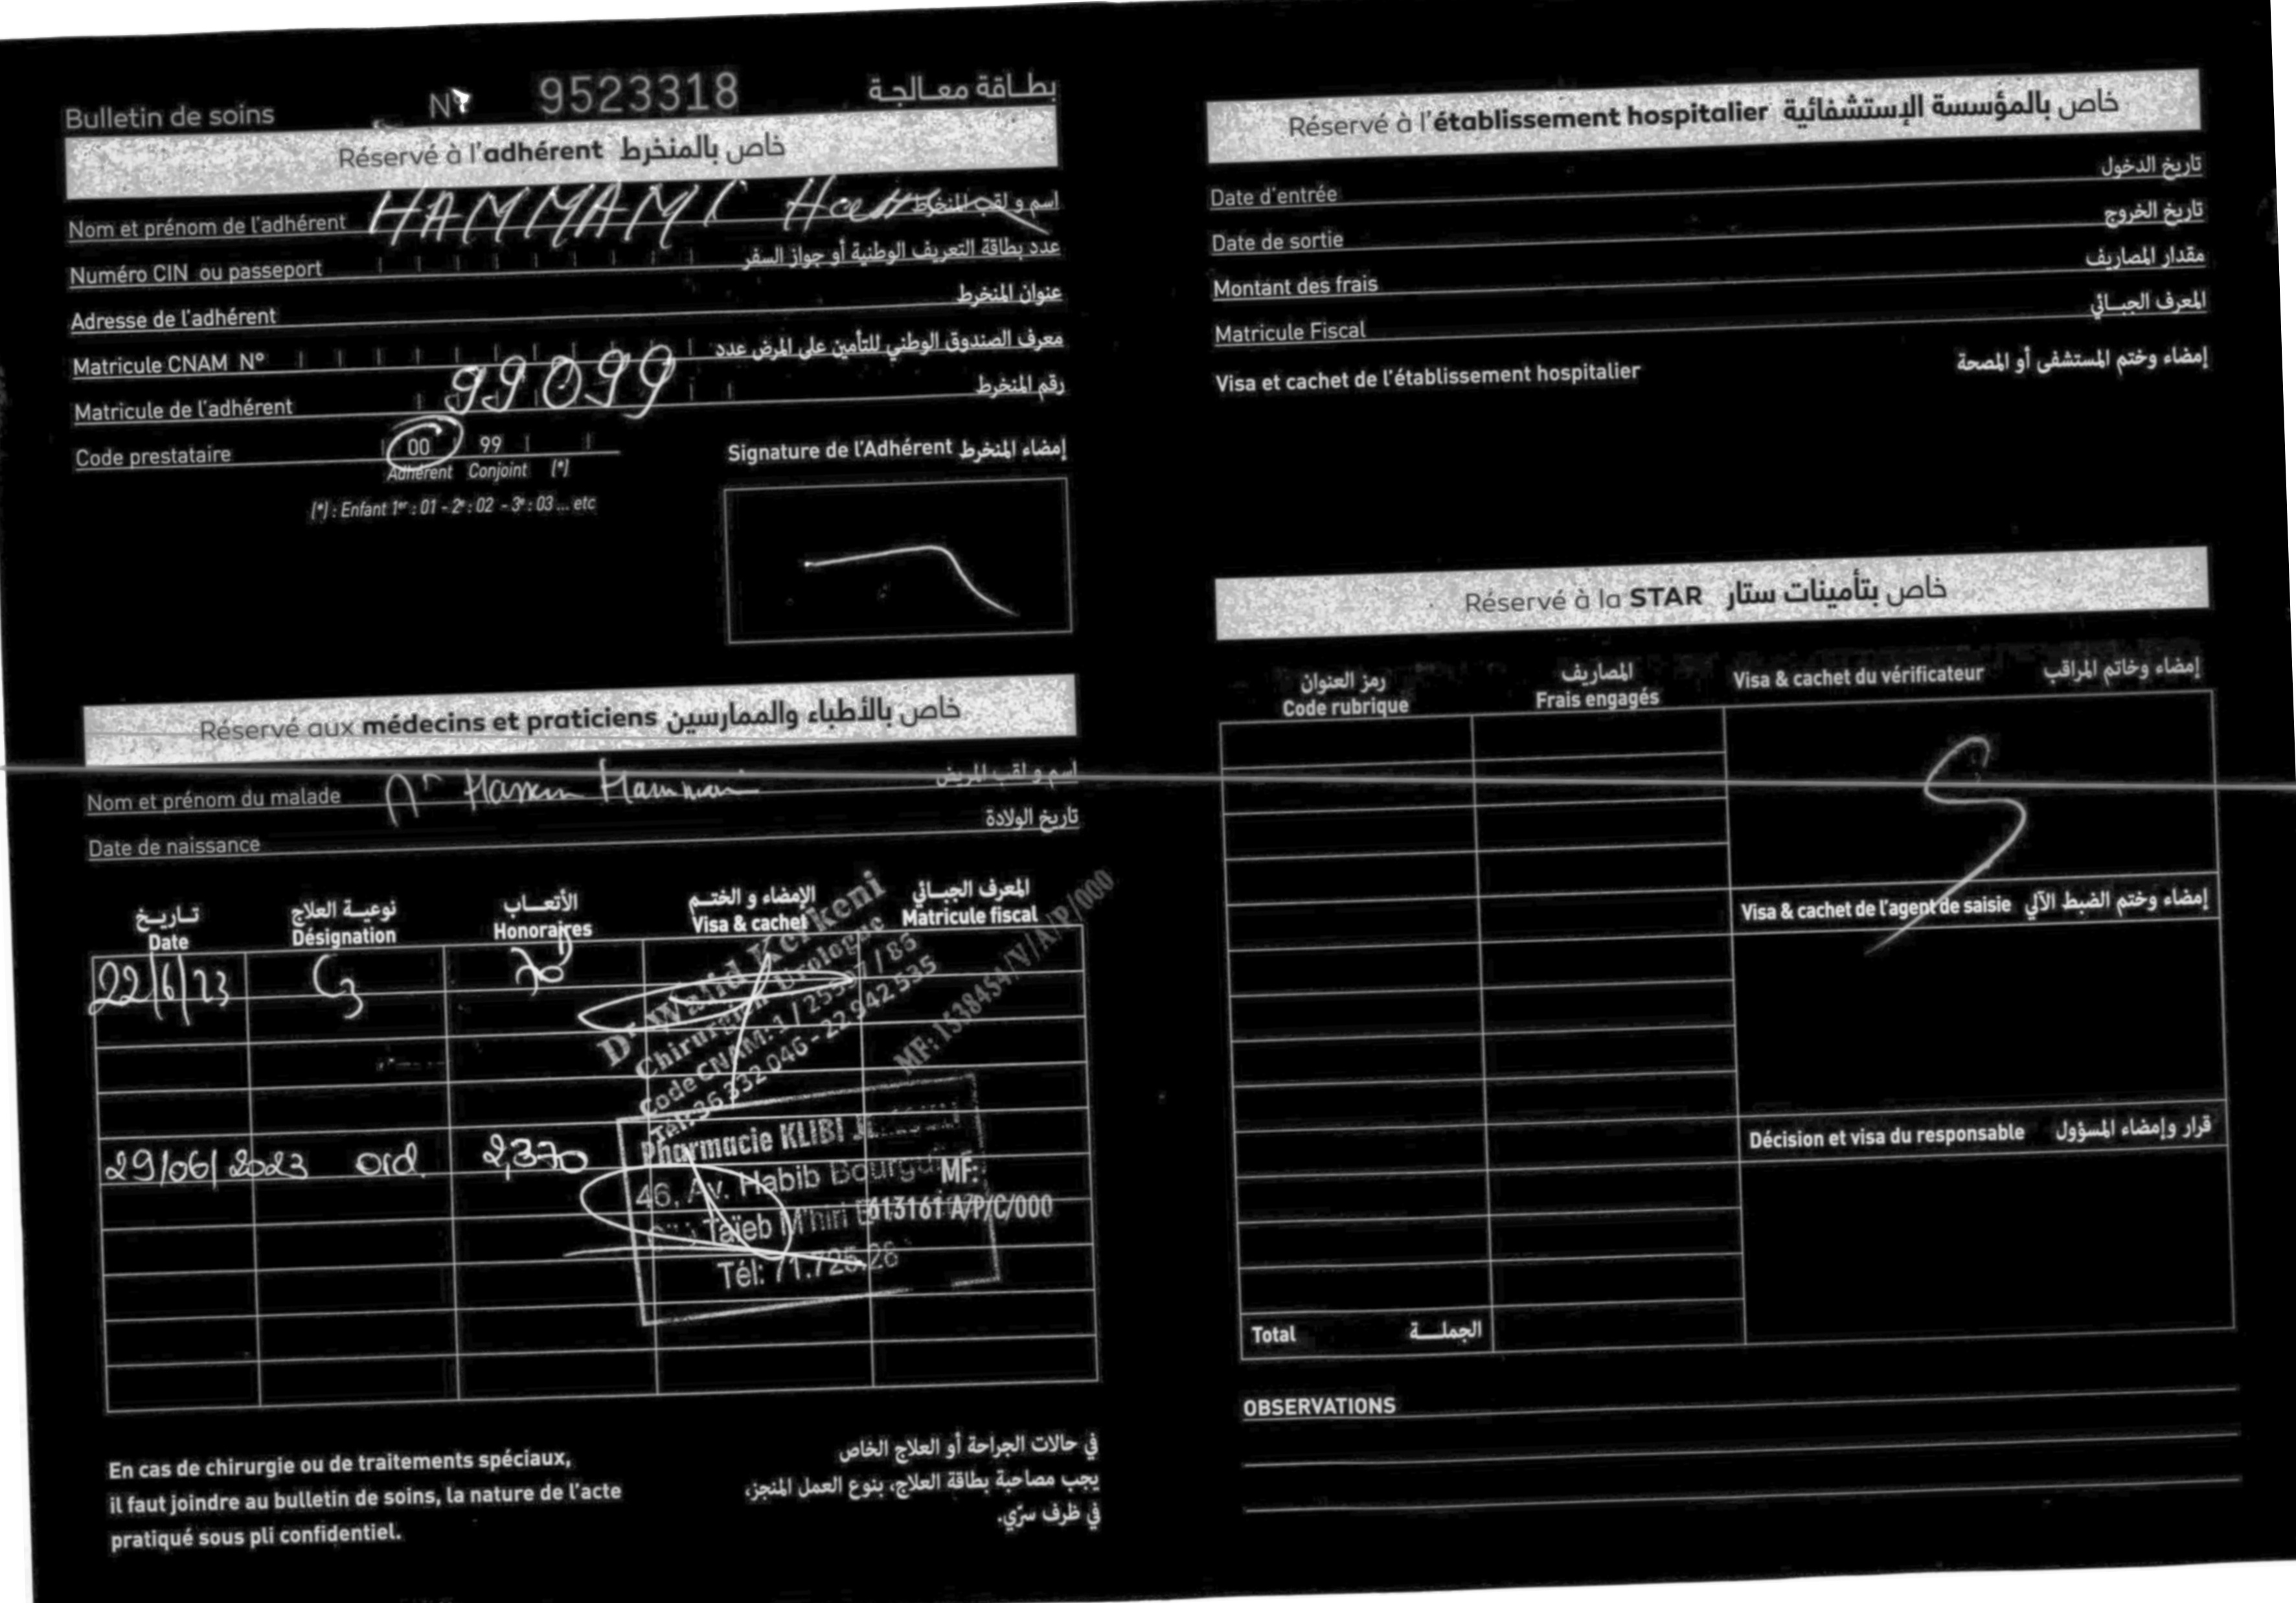 Bulletin de soins N° 9523318 بطاقة معالجة
Réservé à l'adhérent خاص بالمنخرط
Nom et prénom de l'adhérent HAMMAMI اسم و لقب المنخرط
Numéro CIN ou passeport عدد بطاقة التعريف الوطنية أو جواز السفر
Adresse de l'adhérent عنوان المنخرط
Matricule CNAM N° معرف الصندوق الوطني للتأمين على المرض عدد
Matricule de l'adhérent 99099 رقم المنخرط
Code prestataire 00 99
Adhérent Conjoint (*)
(*) : Enfant 1er : 01 - 2e : 02 - 3e : 03 ... etc
Signature de l'Adhérent إمضاء المنخرط
Réservé aux médecins et praticiens خاص بالأطباء والممارسين
Nom et prénom du malade Mr Hassen Hammami اسم و لقب المريض
Date de naissance تاريخ الولادة
تاريخ نوعية العلاج الأتعاب الإمضاء و الختم المعرف الجبائي
Date Désignation Honoraires Visa & cachet Matricule fiscal
22/6/23 C3 70
Dr Walid Kerkeni
Chirurgien Urologue
Code CNAM: 1 / 25597 / 86
Tél: 36 332 046 - 22 942 535
MF: 1538454/V/A/P/000
29/06/2023 ord. 2,370
Pharmacie KLIBI
46, Av. Habib
Taïeb M'hiri
Tél: 71.725.
MF:
613161 A/P/C/000
En cas de chirurgie ou de traitements spéciaux,
il faut joindre au bulletin de soins, la nature de l'acte
pratiqué sous pli confidentiel.
في حالات الجراحة أو العلاج الخاص
يجب مصاحبة بطاقة العلاج، بنوع العمل المنجز،
في ظرف سرّي.
Réservé à l'établissement hospitalier خاص بالمؤسسة الإستشفائية
Date d'entrée تاريخ الدخول
Date de sortie تاريخ الخروج
Montant des frais مقدار المصاريف
Matricule Fiscal المعرف الجبائي
Visa et cachet de l'établissement hospitalier إمضاء وختم المستشفى أو المصحة
Réservé à la STAR خاص بتأمينات ستار
رمز العنوان المصاريف
Code rubrique Frais engagés Visa & cachet du vérificateur إمضاء وخاتم المراقب
Visa & cachet de l'agent de saisie إمضاء وختم الضبط الآلي
Décision et visa du responsable قرار وإمضاء المسؤول
Total الجملة
OBSERVATIONS